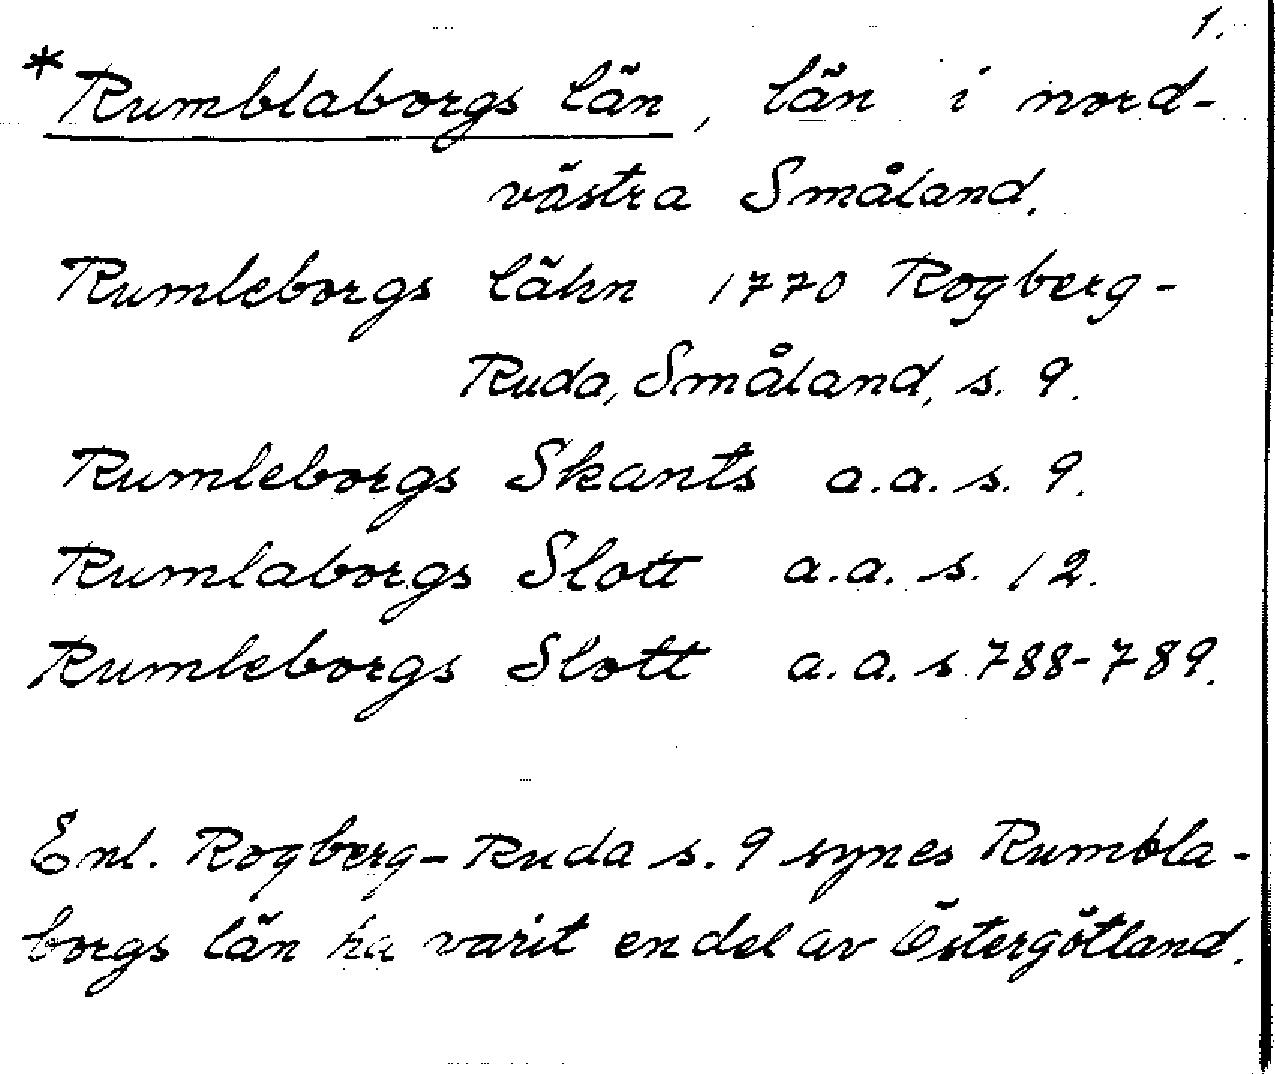 1.
*Rumblaborgs län, län i nord-
västra Småland.
Rumleborgs lähn 1770 Rogberg-
Ruda, Småland, s. 9.
Rumleborgs Skants a.a. s. 9.
Rumlaborgs Slott a.a. s. 12.
Rumleborgs Slott a.a. s. 788-789.
Enl. Rogberg-Ruda s. 9 synes Rumbla-
borgs län ha varit en del av Östergötland.